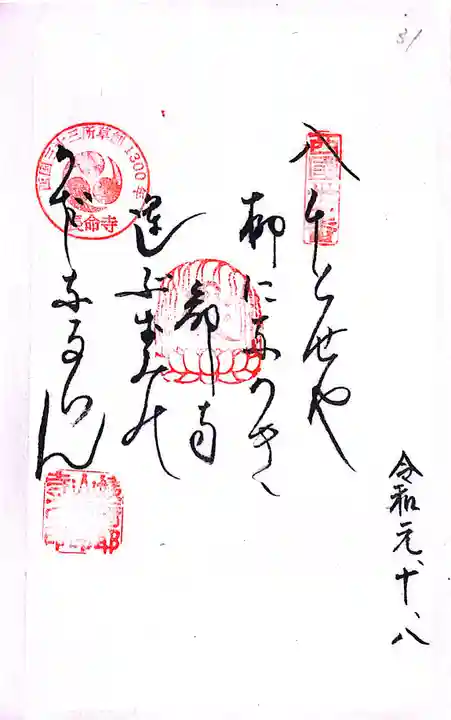 31
八千とせや
柳にながき
命寺
運ぶ歩みの
かざしなるらん
西国三十三所草創1300年
長命寺
令和元、十、八